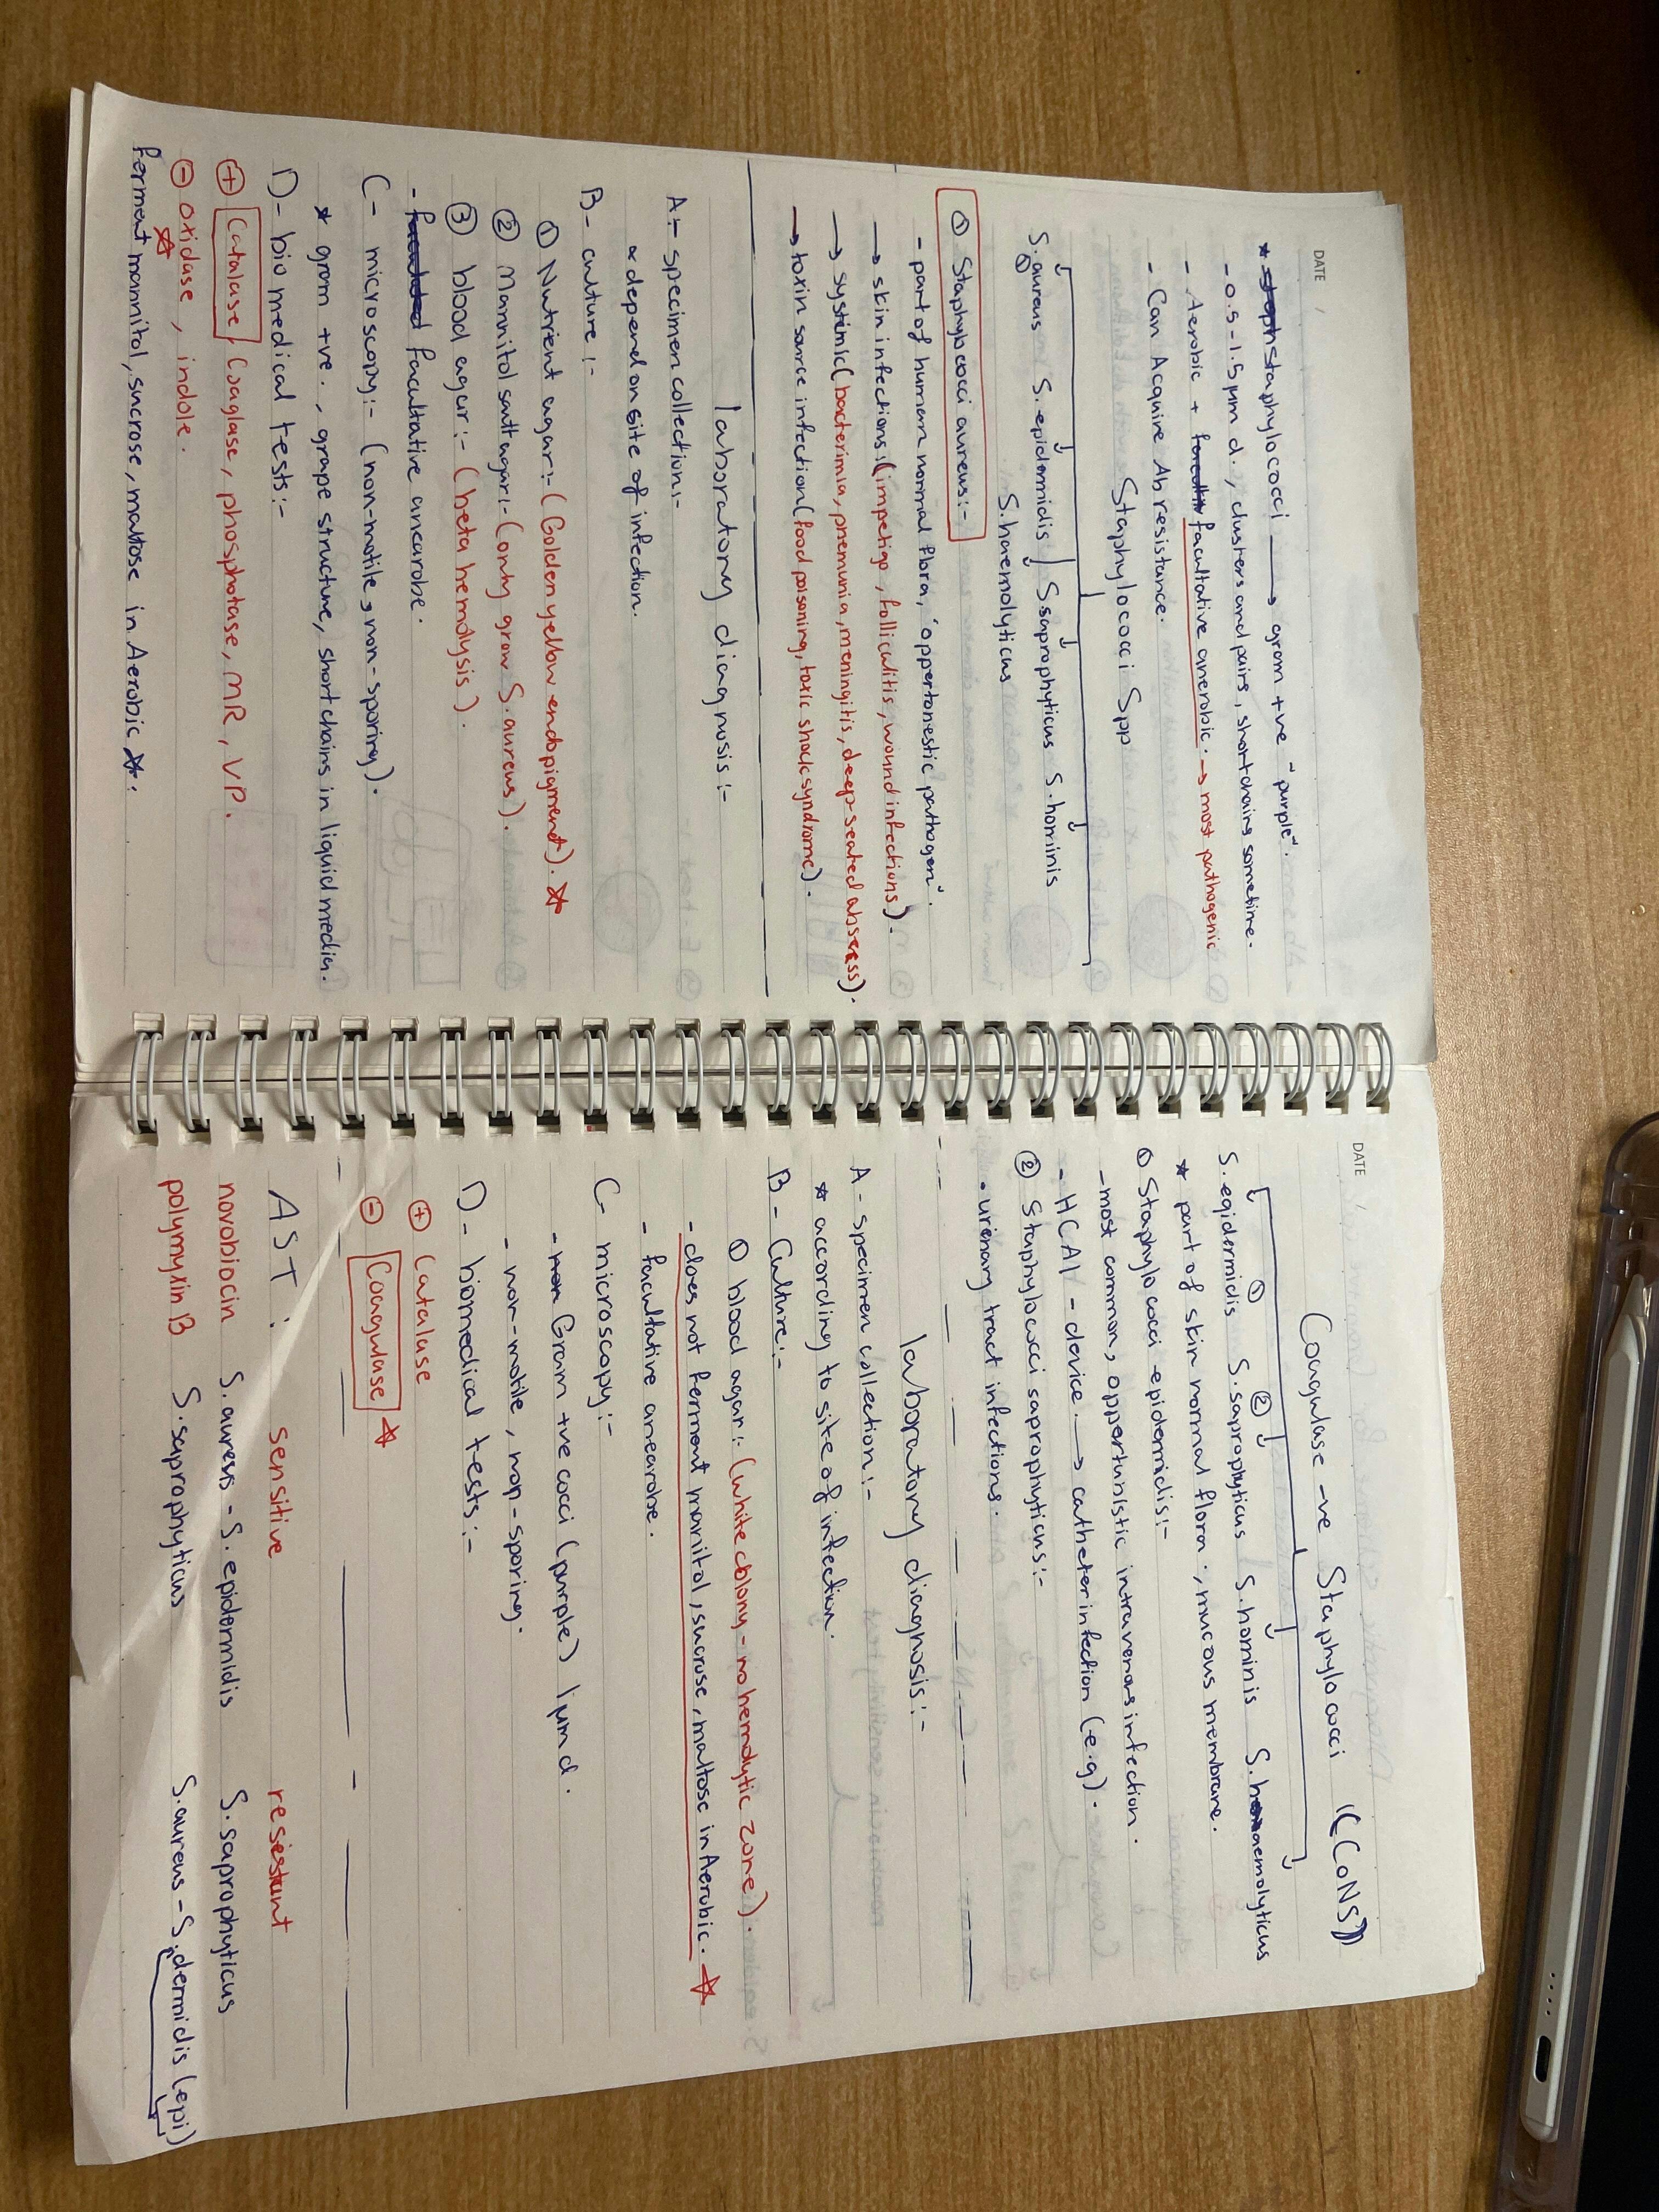 DATE
* staphylococci → gram +ve "purple".
- 0.5-1.5 µm d., clusters and pairs, short chains sometime.
- Aerobic + facultative anerobic. → most pathogenic
- Can Acquire Ab resistance.
Staphylococci Spp
S. aureus S. epidemidis S saprophyticus S. hominis
①
S. haemolyticus
① Staphylococci aureus:-
- part of human normal flora, "oppertonestic pathogen".
→ skin infections: (impetigo, folliculitis, wound infections).
→ systemic (bacterimia, pnemunia, meningitis, deep-seated absess).
→ toxin source infection (food poisoning, toxic shock syndrome).
laboratory diagnosis:-
A:- specimen collection:-
* depend on site of infection.
B- culture:-
① Nutrient agar:- (Golden yellow endopigment). ☆
② mannitol sault agar:- (only grow S. aureus).
③ blood agar:- (beta hemolysis).
- facultative anearobe.
C- microscopy:- (non-motile, non-sporing).
* gram +ve., grape structure, short chains in liquid media.
D- bio medical tests:-
+ Catalase, Coaglase, phosphatase, MR, VP.
- oxidase, indole.
☆
ferment mannitol, sucrose, maltose in Aerobic ☆.
DATE
Coagulase -ve Staphylococci ((CoNS))
① ②
S. epidermidis S. saprophyticus S. hominis S. haemolyticus
* part of skin normal flora; mucous membrane.
① Staphylococci epidemidis:-
- most common, oppertunistic intravenous infection.
- HCAI - device. → catheter infection (e.g).
② Staphylococci saprophyticus:-
- urienary tract infections.
laboratory diagnosis:-
A- specimen collection:-
* according to site of infection.
B- Culture:-
① blood agar:- (white colony - no hemolytic zone).
- does not ferment manitol, sucrose, maltose in Aerobic. ☆
- facultative anearobe.
C- microscopy:-
- Gram +ve cocci (purple) 1µm d.
- non-motile, non-sporing.
D- biomedical tests:-
+ Catalase
- Coagulase ☆
AST: sensitive resistant
novobiocin S. aureus - S. epidermidis S. saprophyticus
polymyxin B S. saprophyticus S. aureus - S. dermidis (epi)